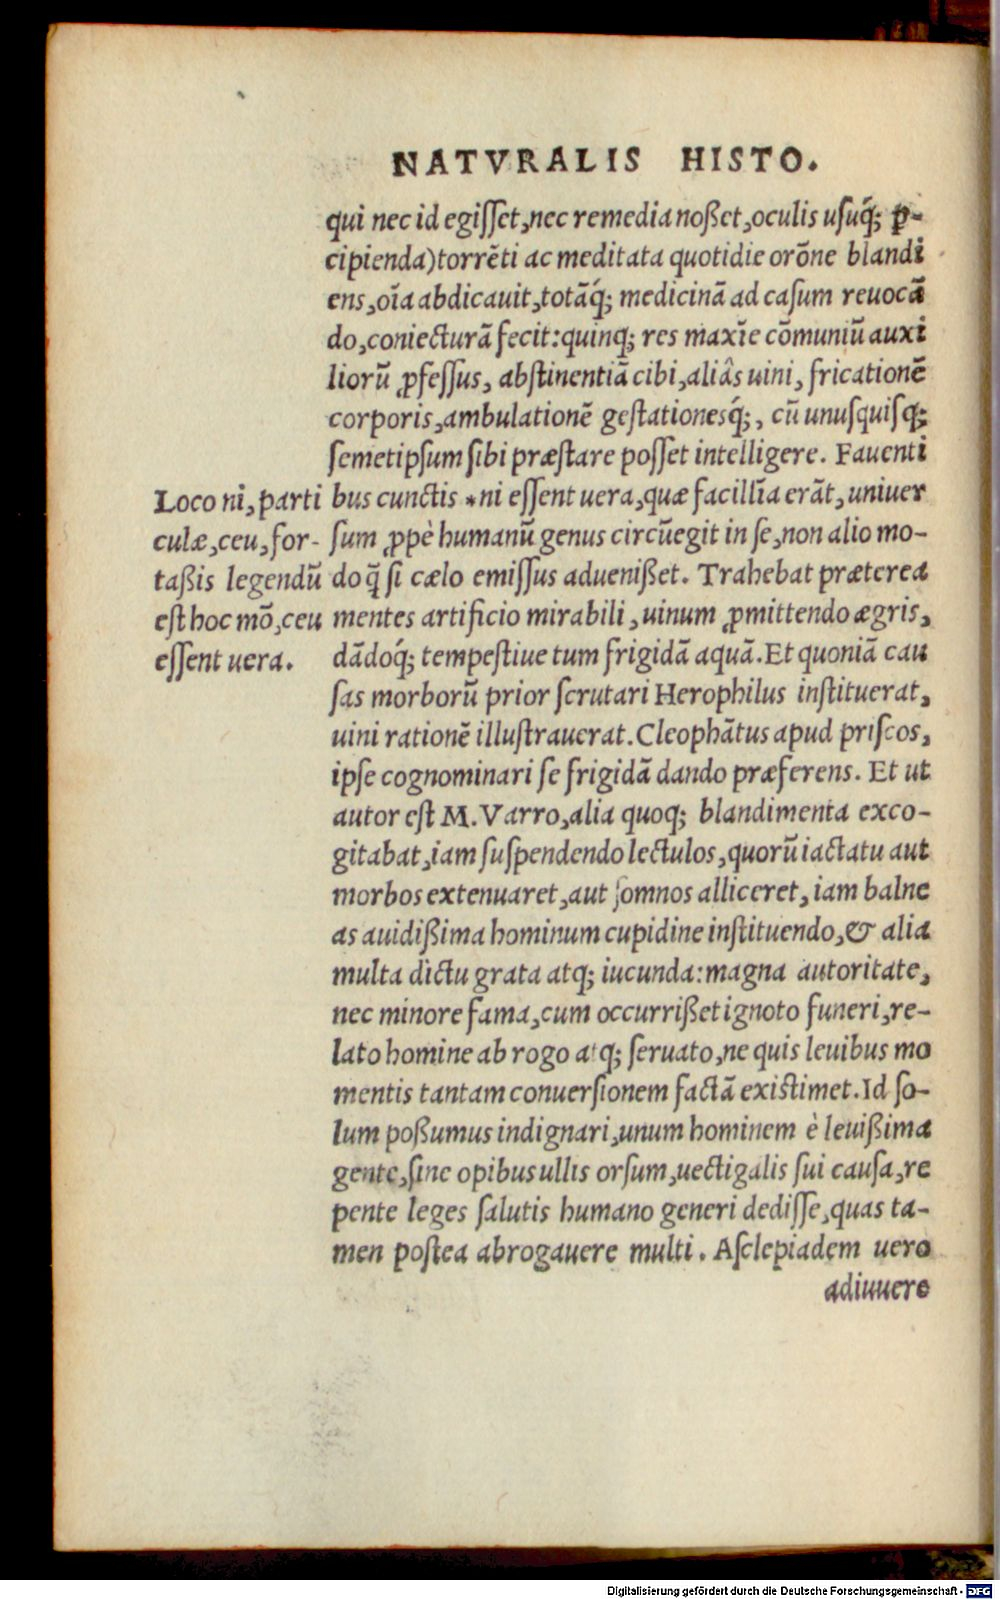 NATVRALIS HISTO.
qui nec id egiſſet, nec remedia noßet, oculis uſuq́; ꝑ-
cipienda) torrẽti ac meditata quotidie orõne blandi
ens, oĩa abdicauit, totãq́; medicinã ad caſum reuocã
do, coniecturã fecit: quinq; res maxĩe cõmuniũ auxi
liorũ ꝓfeſſus, abſtinentiã cibi, aliâs uini, fricationẽ
corporis, ambulationẽ geſtationesq́;, cũ unuſquiſq;
ſemetipſum ſibi præſtare poſſet intelligere. Fauenti
bus cunctis *ni eſſent uera, quæ facillĩa erãt, uniuer
ſum ꝓpè humanũ genus circũegit in ſe, non alio mo-
do q̃ ſi cælo emiſſus adueniſſet. Trahebat præterea
mentes artificio mirabili, uinum ꝓmittendo ægris,
dãdoq́; tempeſtiue tum frigidã aquã. Et quoniã cau
ſas morborũ prior ſcrutari Herophilus inſtituerat,
uini rationẽ illuſtrauerat. Cleophãtus apud priſcos,
ipſe cognominari ſe frigidã dando præferens. Et ut
autor eſt M. Varro, alia quoq; blandimenta exco-
gitabat, iam ſuſpendendo lectulos, quorũ iactatu aut
morbos extenuaret, aut ſomnos alliceret, iam balne
as auidißima hominum cupidine inſtituendo, & alia
multa dictu grata atq; iucunda: magna autoritate,
nec minore fama, cum occurrißet ignoto funeri, re-
lato homine ab rogo atq; ſeruato, ne quis leuibus mo
mentis tantam conuerſionem factã exiſtimet. Id ſo-
lum poßumus indignari, unum hominem è leuißima
gente, ſine opibus ullis orſum, uectigalis ſui cauſa, re
pente leges ſalutis humano generi dediſſe, quas ta-
men poſtea abrogauere multi. Aſclepiadem uero
adiuuere
Loco ni, parti
culæ, ceu, for-
taßis legendũ
eſt hoc mõ, ceu
eſſent uera.
Digitalisierung gefördert durch die Deutsche Forschungsgemeinschaft - DFG